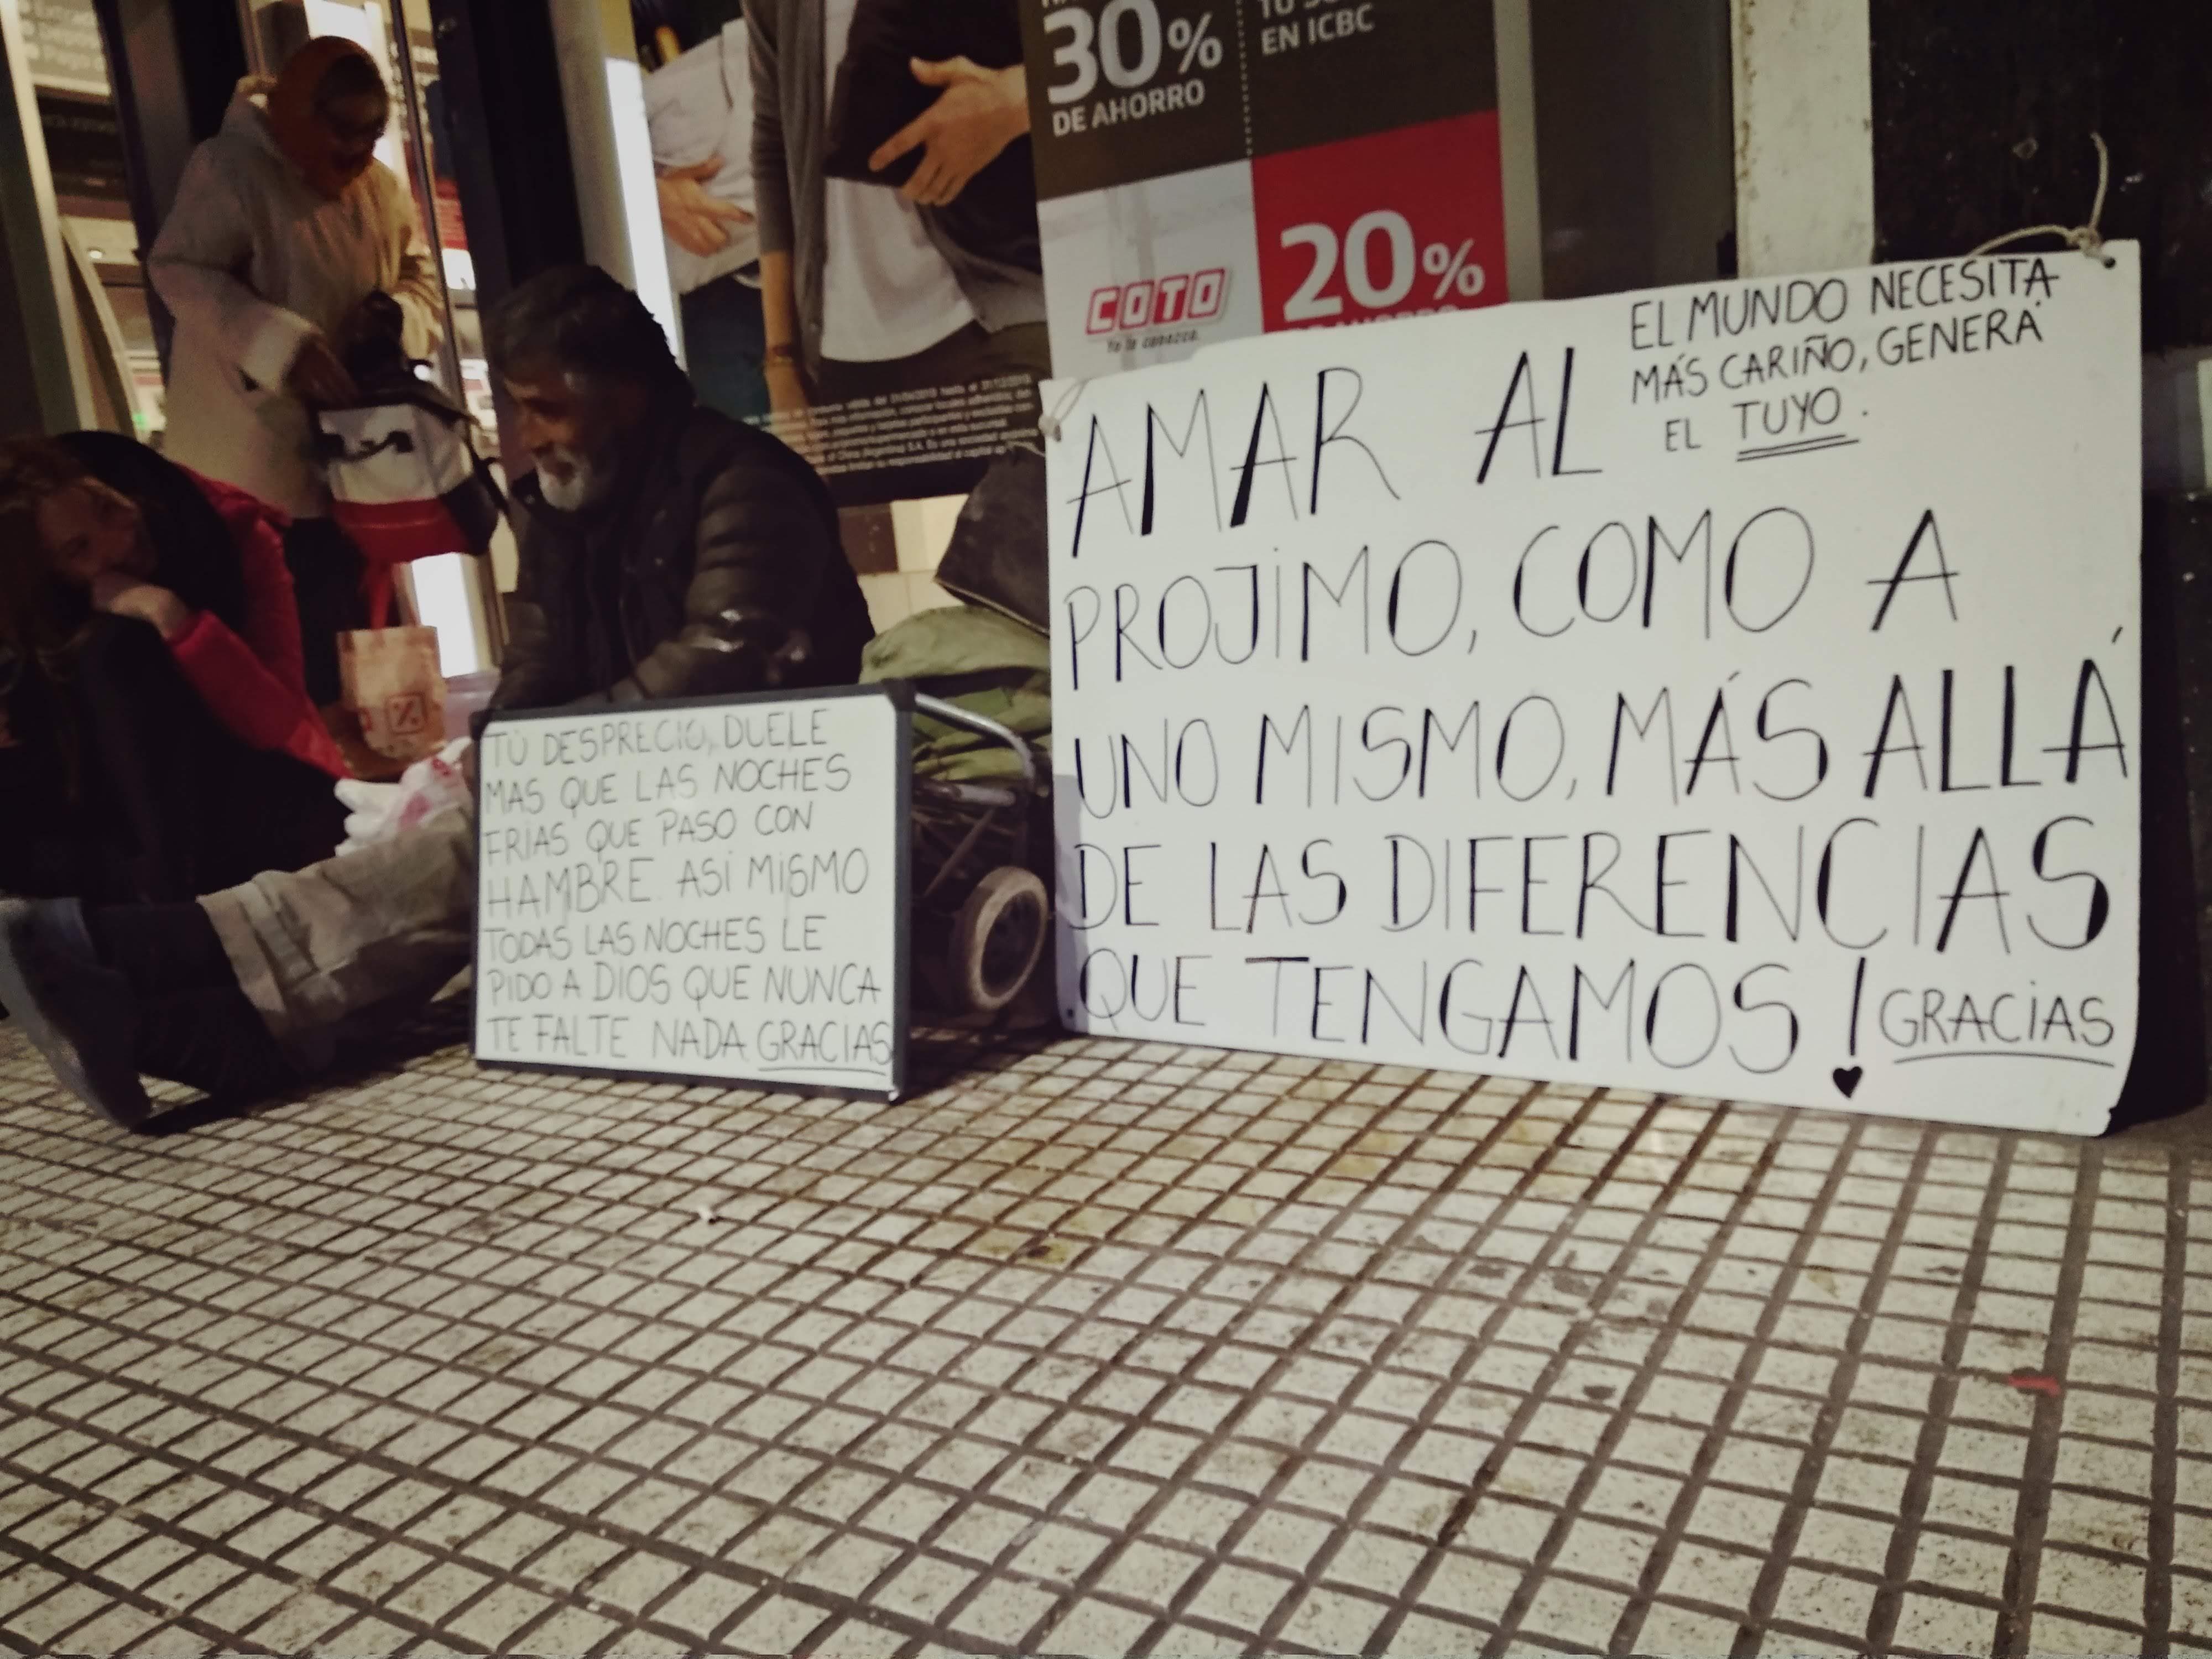 30%
DE AHORRO
EN ICBC
COTO
Yo te conozco.
20%
EL MUNDO NECESITA
MÁS CARIÑO, GENERÁ
EL TUYO.
AMAR AL
PROJIMO, COMO A
UNO MISMO, MÁS ALLÁ
DE LAS DIFERENCIAS
QUE TENGAMOS!
GRACIAS
TÚ DESPRECIO, DUELE
MAS QUE LAS NOCHES
FRÍAS QUE PASO CON
HAMBRE. ASÍ MISMO
TODAS LAS NOCHES LE
PIDO A DIOS QUE NUNCA
TE FALTE NADA GRACIAS